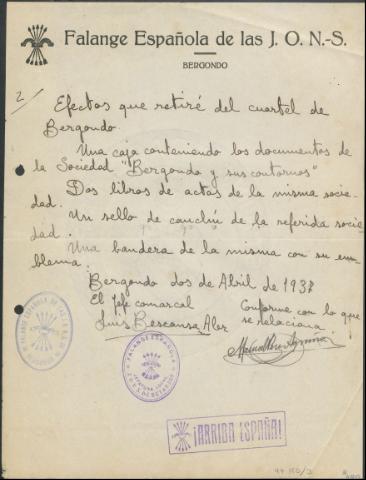 Falange Española de las J. O. N.-S.
BERGONDO
2/
Efectos que retiré del cuartel de
Bergondo.
Una caja conteniendo los documentos de
la Sociedad "Bergondo y sus contornos"
Dos libros de actas de la misma socie-
dad.
Un sello de cauchú de la referida socie-
dad.
Una bandera de la misma con su em-
blema.
Bergondo dos de Abril de 1937
El Jefe comarcal
Conforme con lo que
se relaciona
Luis Bescansa Aler
FALANGE ESPAÑOLA
FALANGE ESPAÑOLA
¡ARRIBA ESPAÑA!